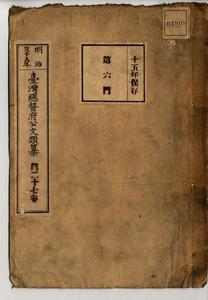 04908
十五年保存
第六門
明治
三十五年
臺灣總督府公文類纂
第二十七卷